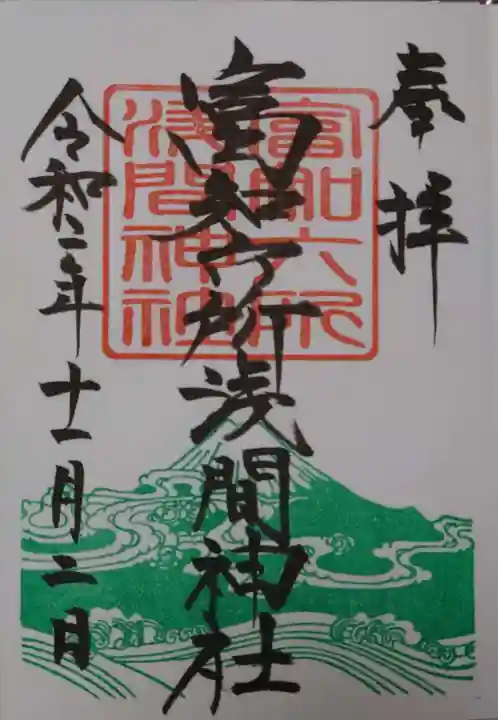 奉拝
富知六所浅間神社
富知六所
浅間神社
令和二年十一月二日